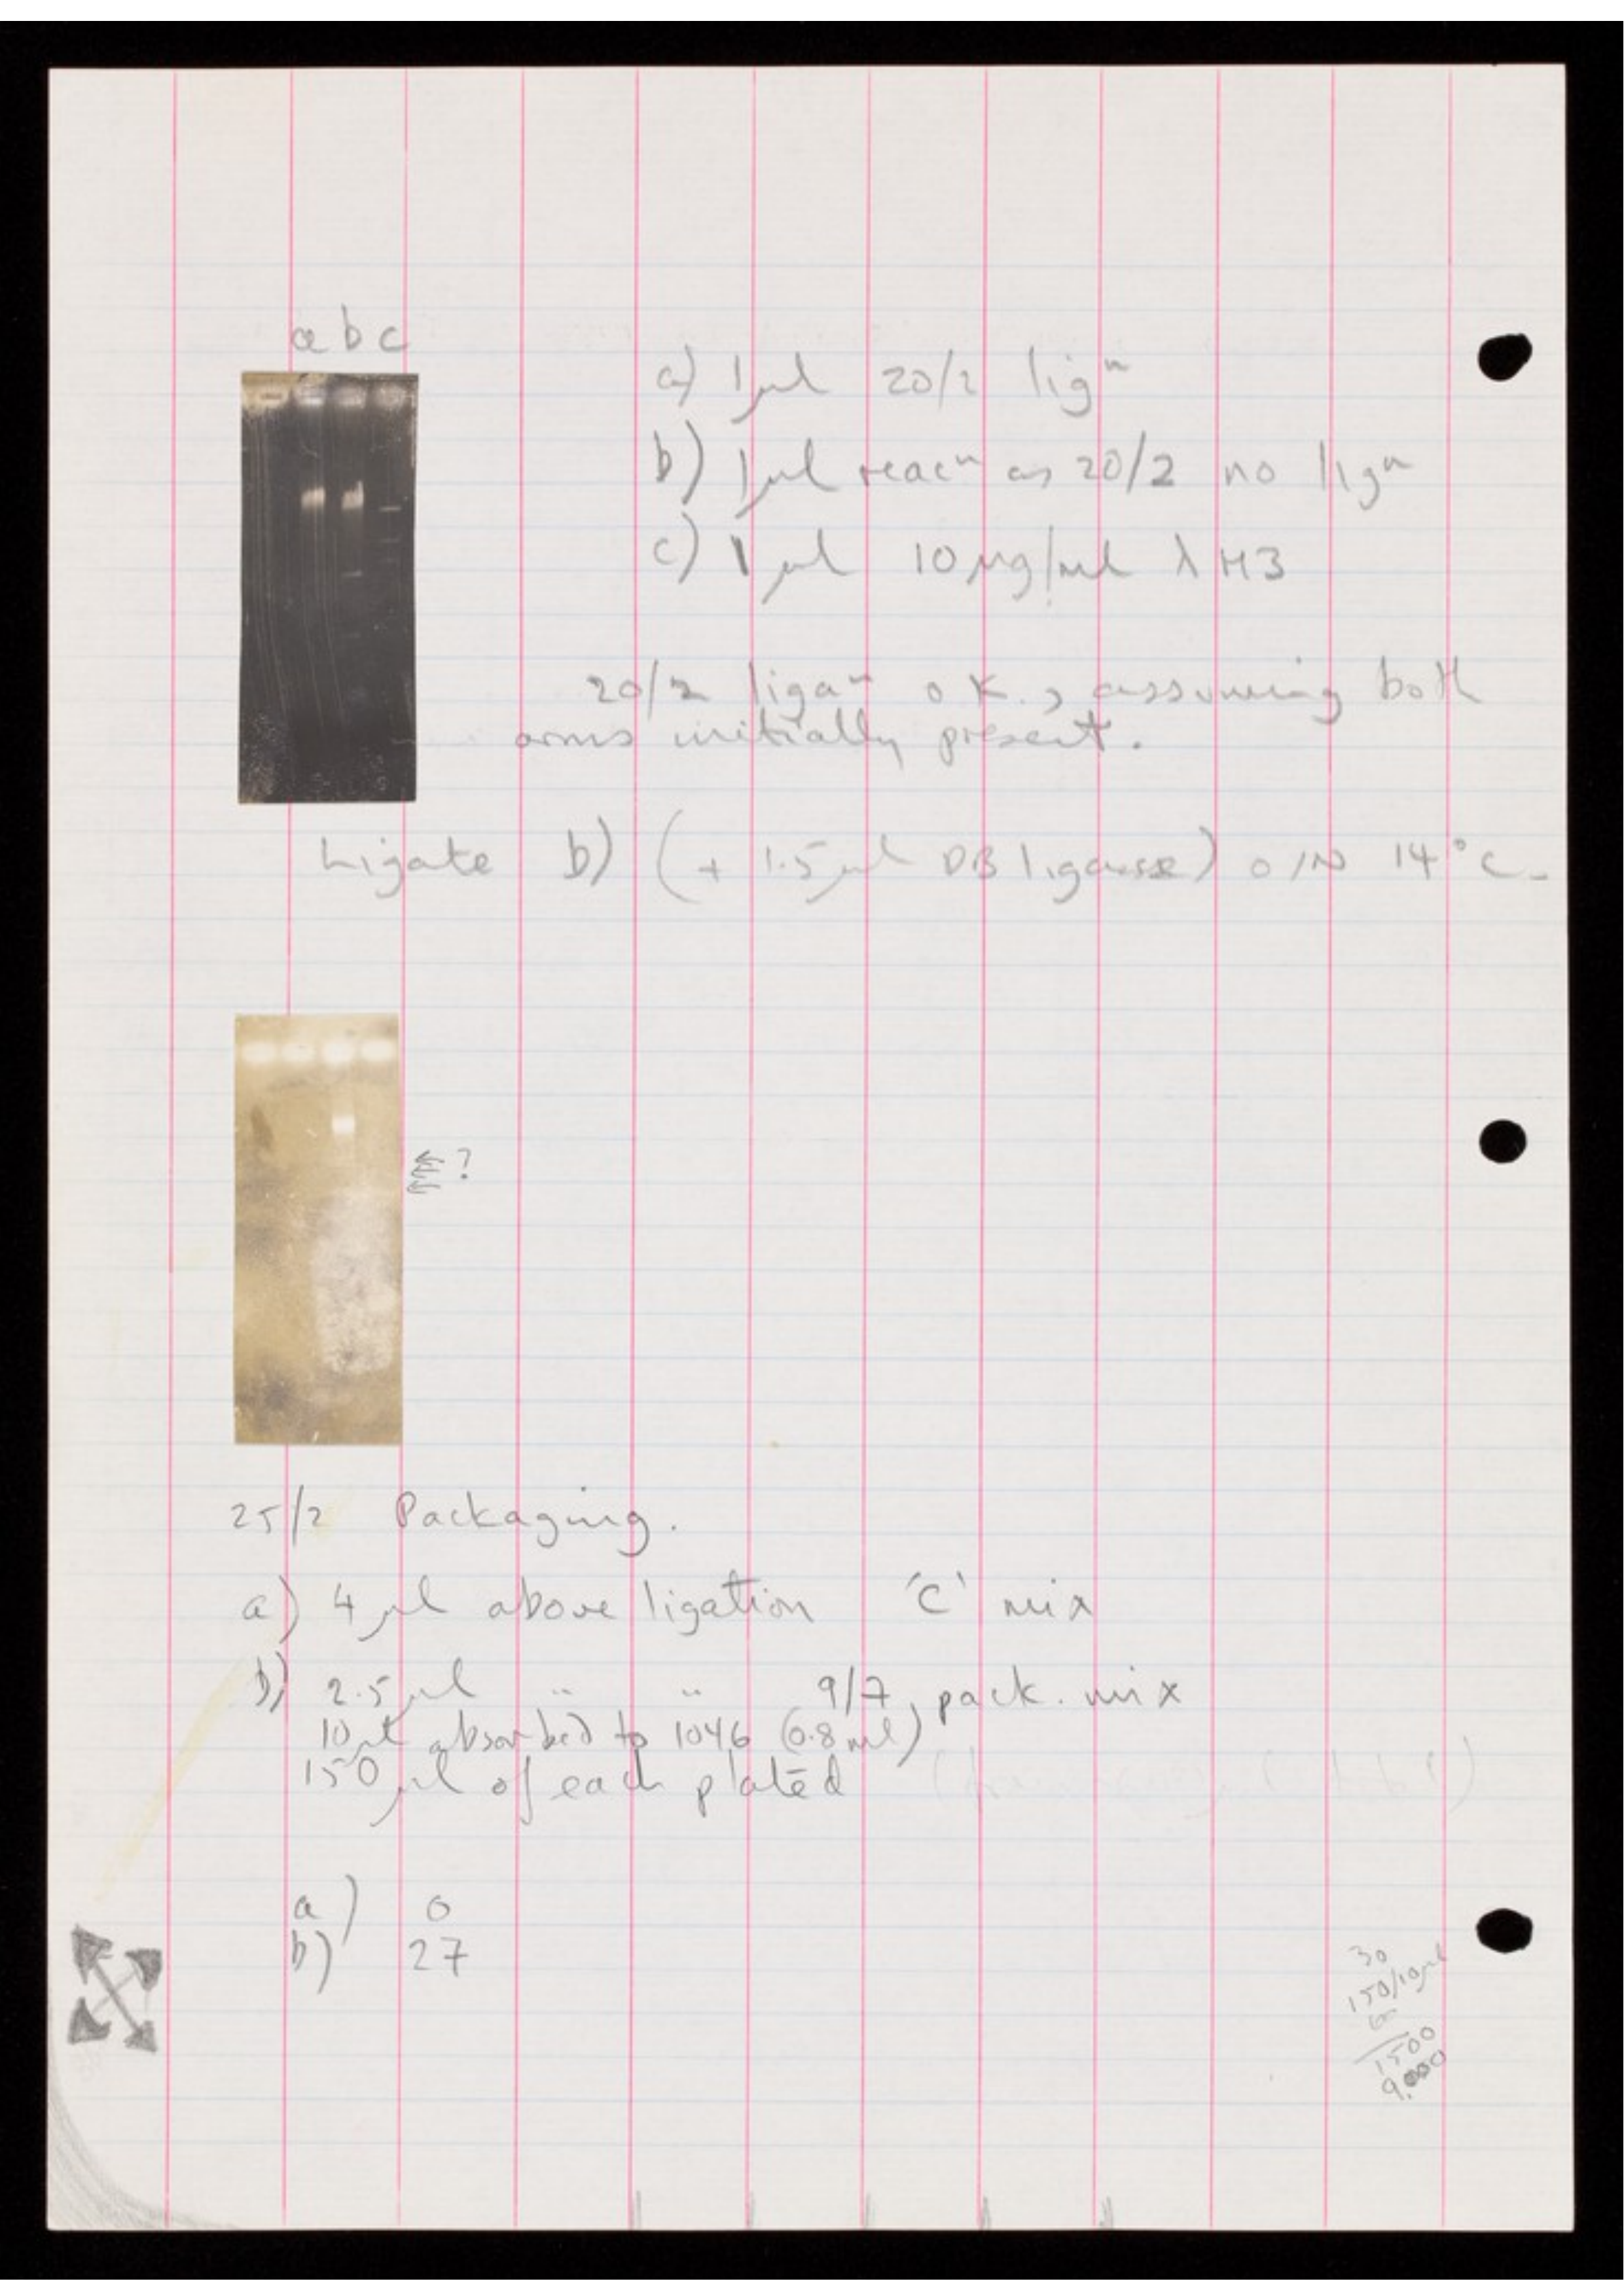 a b c
a) 1µl 20/2 ligⁿ
b) 1µl reacⁿ as 20/2 no ligⁿ
c) 1µl 10µg/ml λH3
20/2 ligaⁿ O.K., assuming both
arms initially present.
Ligate b) (+ 1.5µl DB ligase) O/N 14°C.
?
25/2 Packaging.
a) 4µl above ligation 'C' mix
b) 2.5µl " " 9/7 pack. mix
10µl absorbed to 1046 (0.8ml)
150µl of each plated
a) 0
b) 27
30
150/10µl
1500
9,000